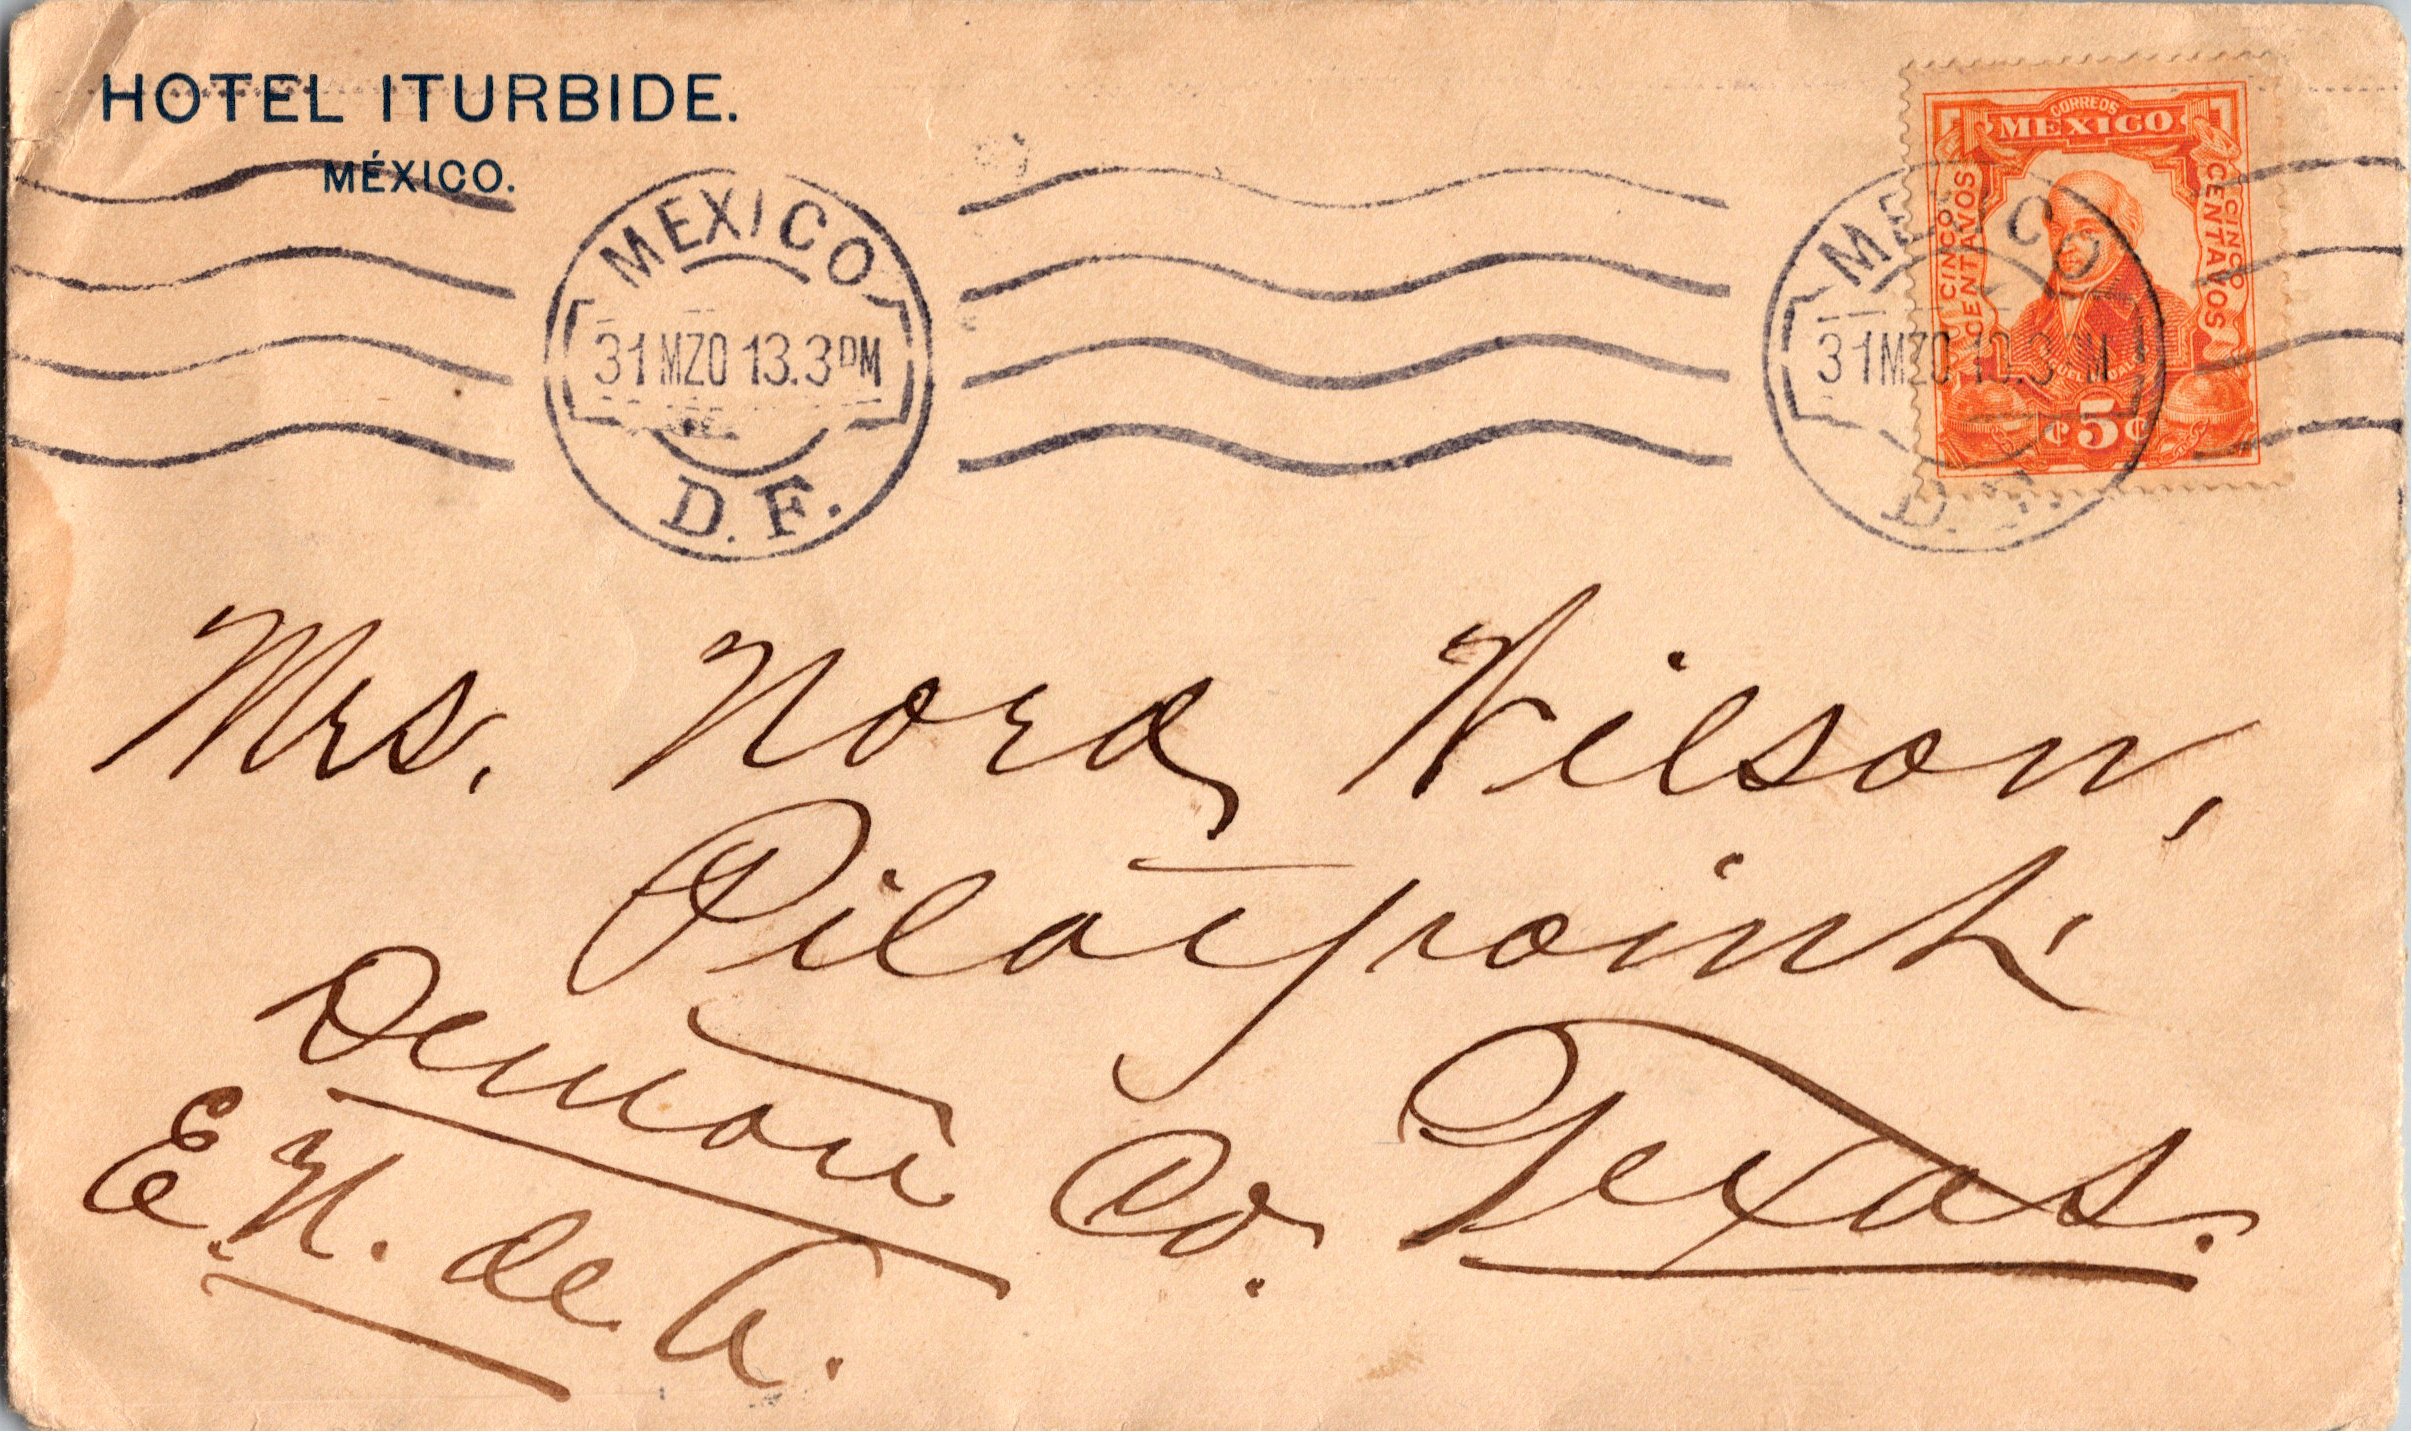 HOTEL ITURBIDE.
MÉXICO.
MEXICO
31 MZO 13.3 PM
D. F.
MEXICO
31 MZO
D. F.
CORREOS
MEXICO
CINCO CENTAVOS
CINCO CENTAVOS
¢5¢
Mrs. Nora Wilson,
Pilotpoint,
Denton Co. Texas.
E. U. de A.